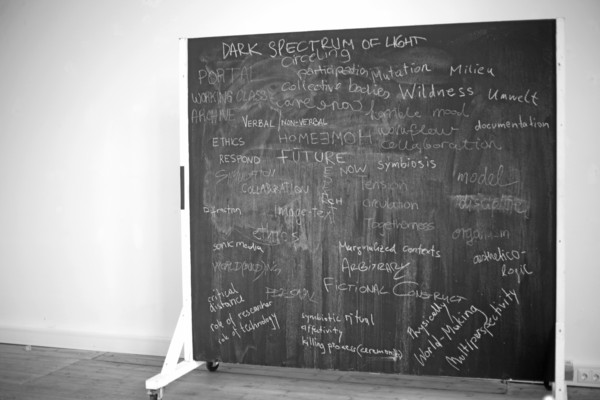 DARK SPECTRUM OF LIGHT
circeling
PORTAL participation Mutation Milieu
WORKING CLASS collective bodies Wildness Umwelt
ARCHIVE care
VERBAL/NON-VERBAL workflow documentation
ETHICS HOME collaboration
RESPOND FUTURE
NOW symbiosis
COLLABORATION Tension model
circulation
Image-Text
Togetherness organ-
sonic media Marginalized contexts aesthetico-
logic
ARBITRARY
FICTIONAL CONSTRUCT
critical
distance
role of researcher
role of technology
symbiotic ritual
affectivity
killing process (ceremony)
Physically
World-Making
Multiperspectivity